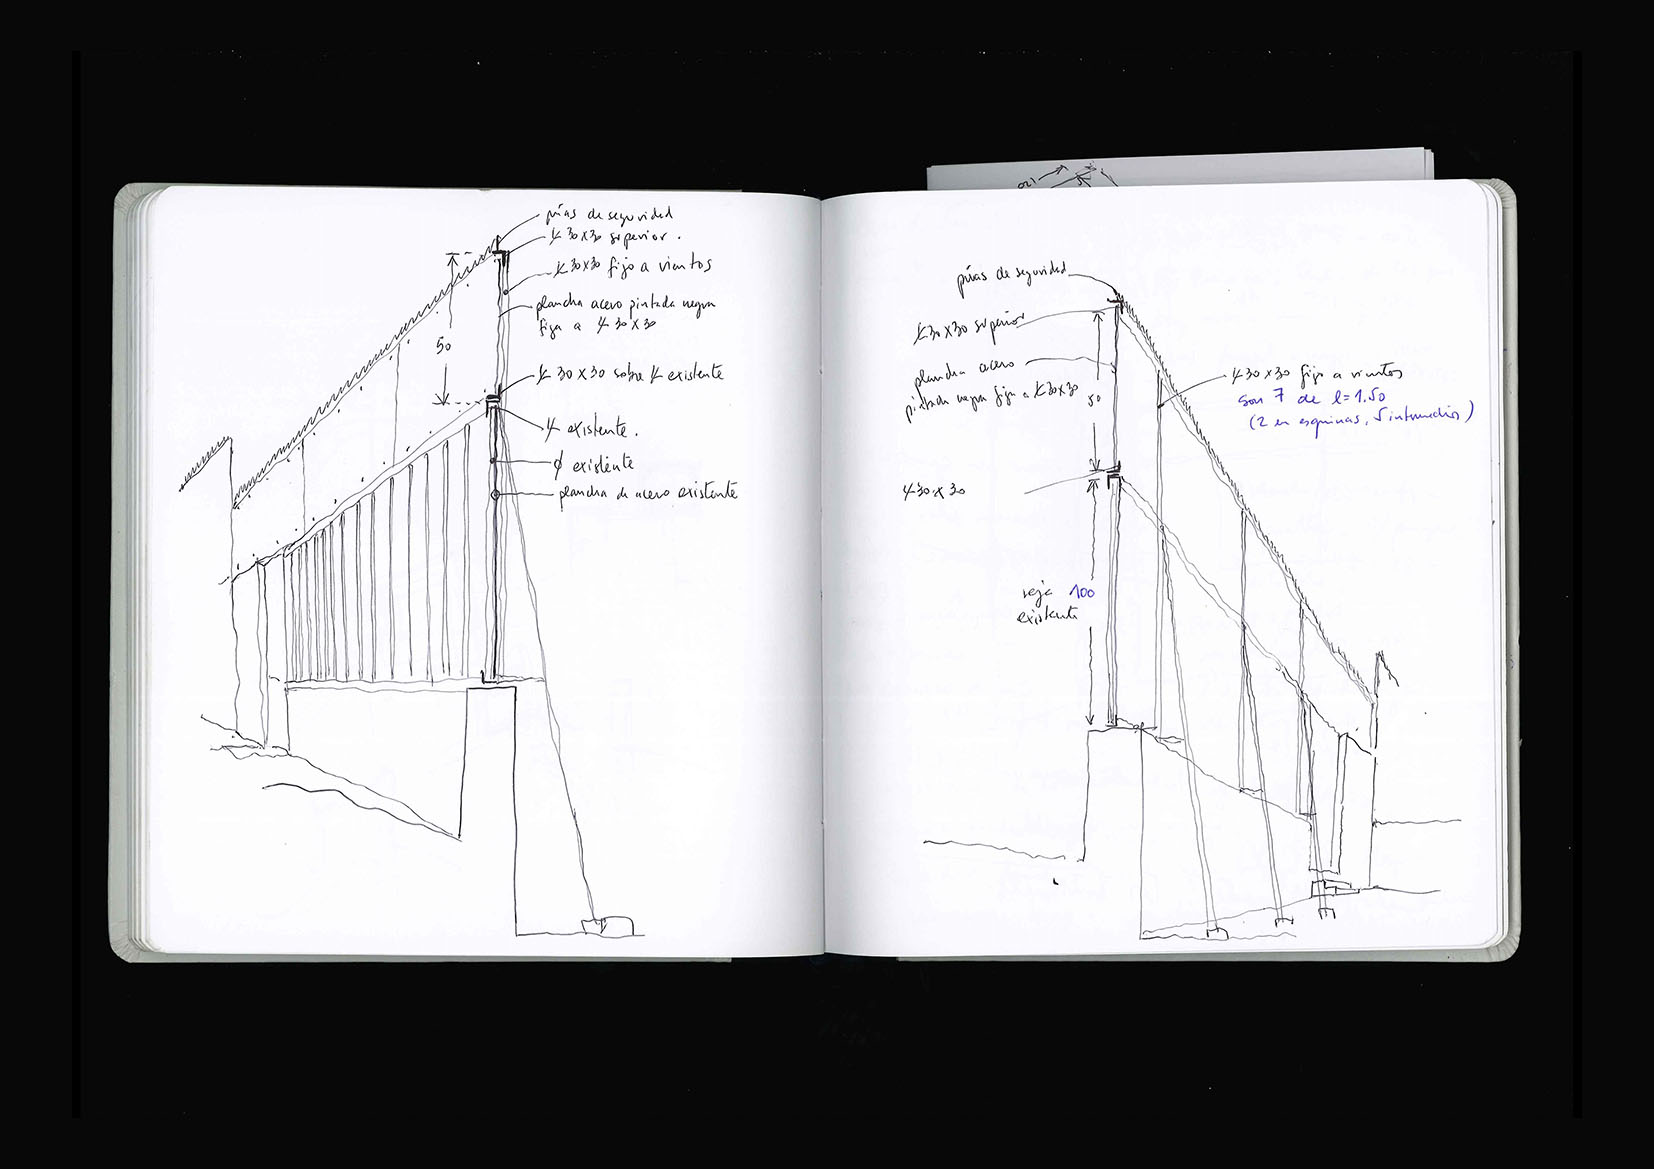 púas de seguridad
∠ 30x30 superior.
∠ 30x30 fijo a vientos
plancha acero pintada negra
fija a ∠ 30x30
50
∠ 30x30 sobre ∠ existente
∠ existente.
φ existente
plancha de acero existente
púas de seguridad
∠ 30x30 superior
plancha acero
pintada negra fija a ∠ 30x30
50
∠ 30x30 fijo a vientos
son 7 de l=1.50
(2 en esquinas, 5 intermedios)
∠ 30x30
reja 100
existente